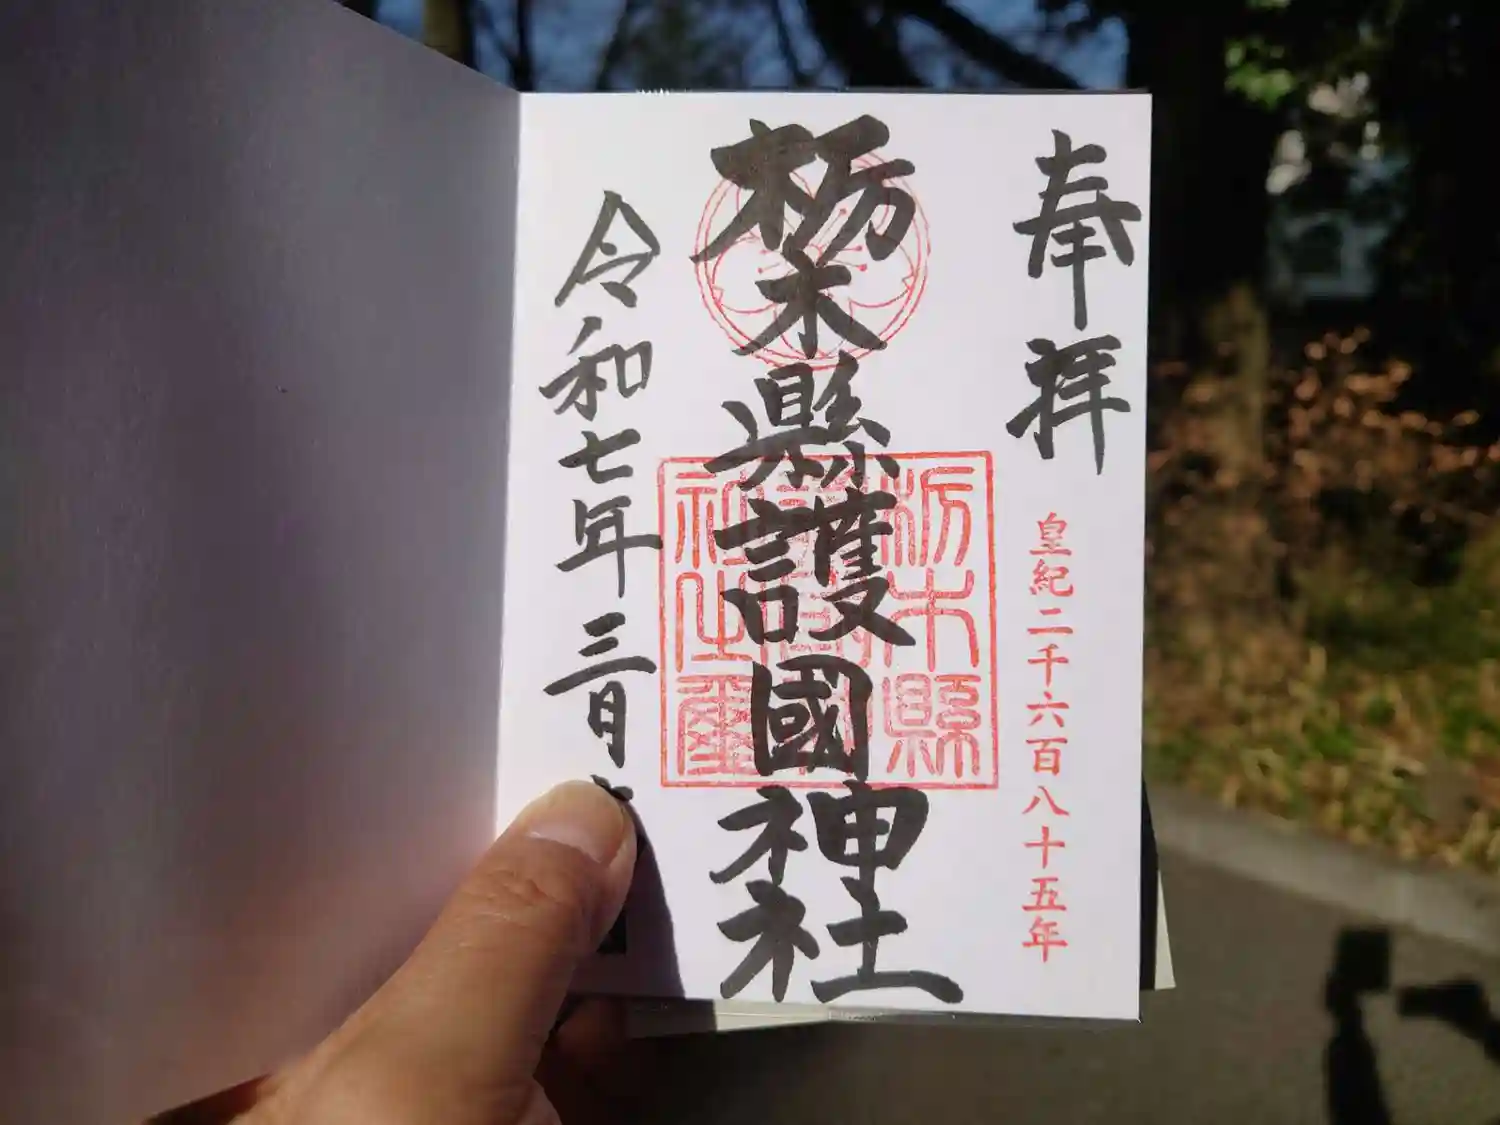 奉拝
皇紀二千六百八十五年
栃木縣護國神社
栃木縣
社之璽
令和七年三月